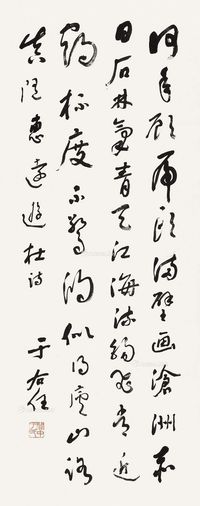 何年顧虎頭滿壁画滄洲赤
日石林氣青天江海流錫飛常近
鶴杯度不驚鷗似得廬山路
真隨惠遠遊杜詩
于右任